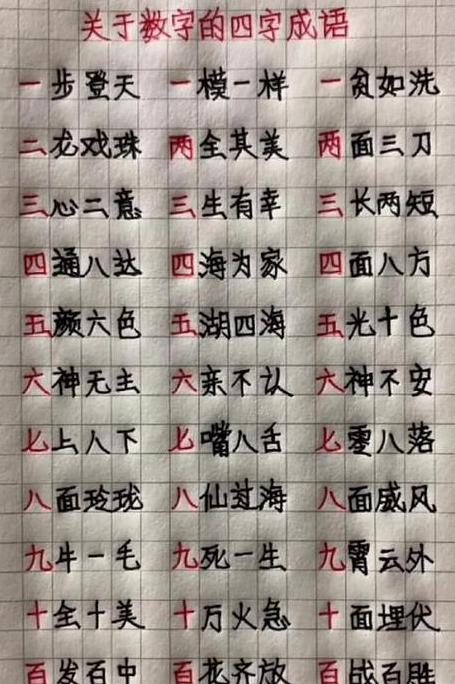 关于数字的四字成语
一步登天 一模一样 一贫如洗
二龙戏珠 两全其美 两面三刀
三心二意 三生有幸 三长两短
四通八达 四海为家 四面八方
五颜六色 五湖四海 五光十色
六神无主 六亲不认 六神不安
七上八下 七嘴八舌 七零八落
八面玲珑 八仙过海 八面威风
九牛一毛 九死一生 九霄云外
十全十美 十万火急 十面埋伏
百发百中 百花齐放 百战百胜